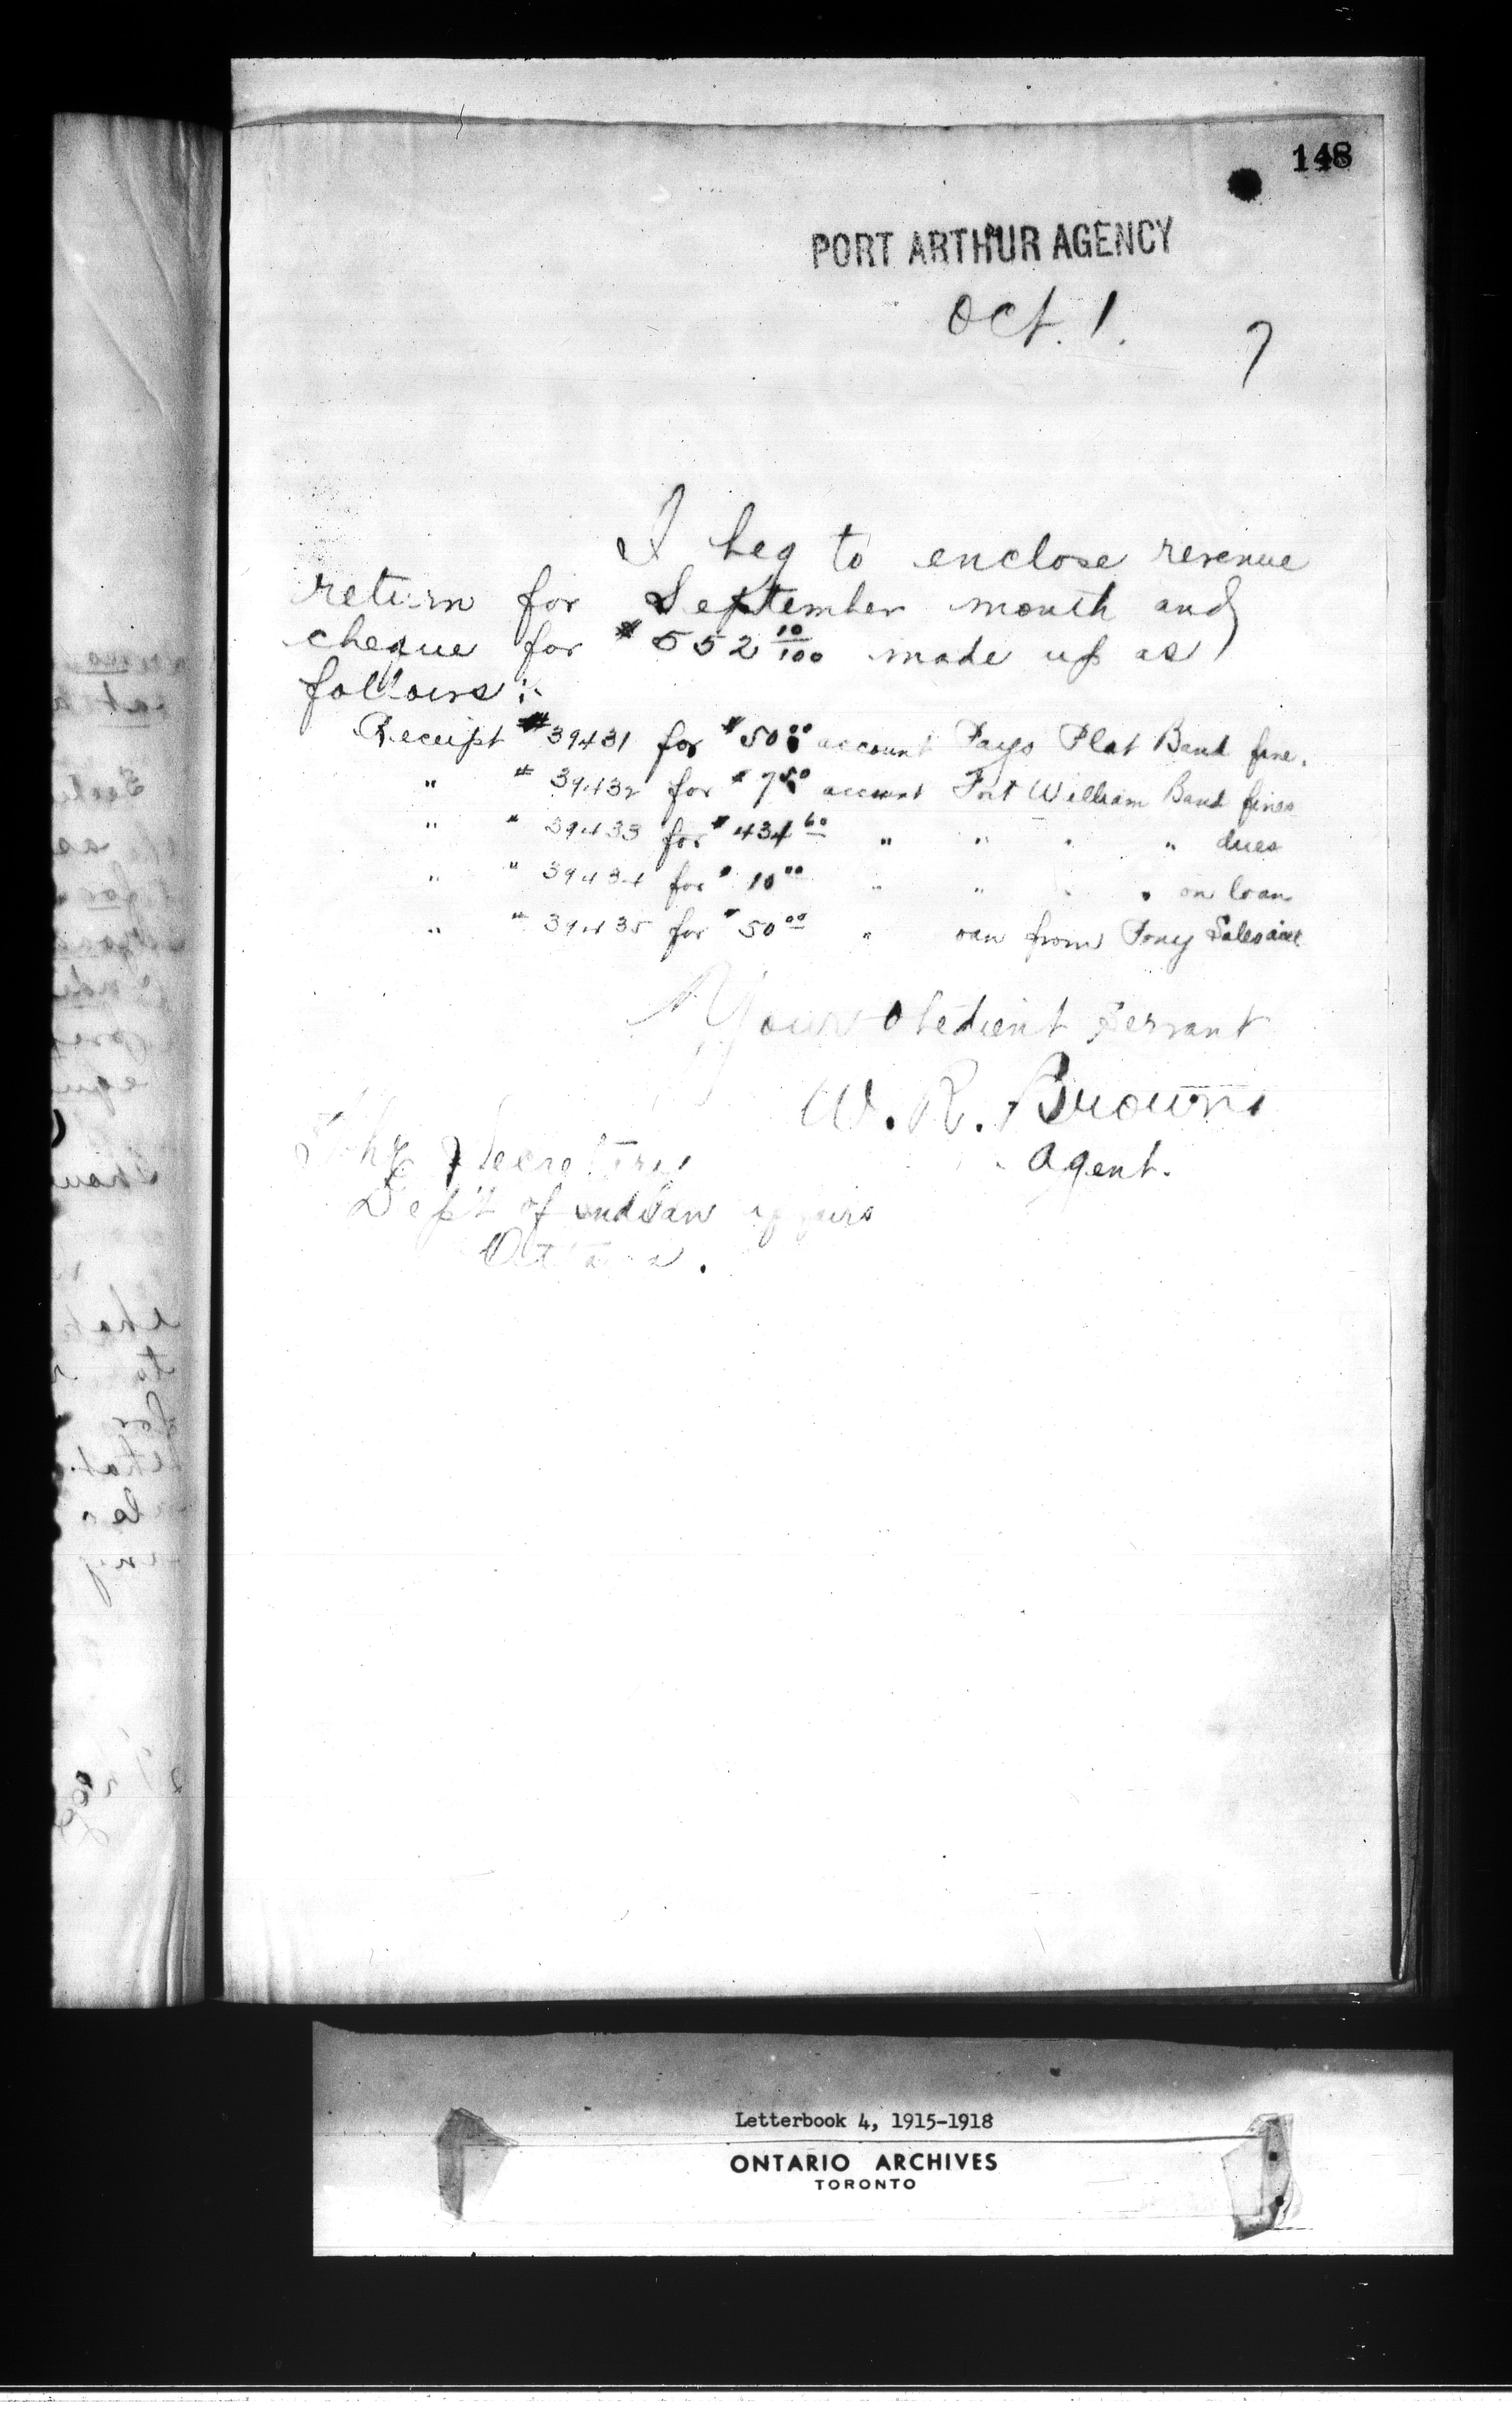 148
PORT ARTHUR AGENCY
Oct. 1. 7
I beg to enclose revenue
return for September month and
cheque for $552 10/100 made up as
follows:-
Receipt #39431 for $50 00 account Pays Plat Band fine.
" # 39432 for $7 50 account Fort William Band fines
" " 39433 for $434 60 " " " " dues
" " 39434 for $10 00 " " " " on loan
" " 39435 for $50 00 " oan from Tony
Your obedient servant
W. R. Brown
Agent.
The Secretary
Dep't of Indian affairs
Ottawa.
Letterbook 4, 1915-1918
ONTARIO ARCHIVES
TORONTO